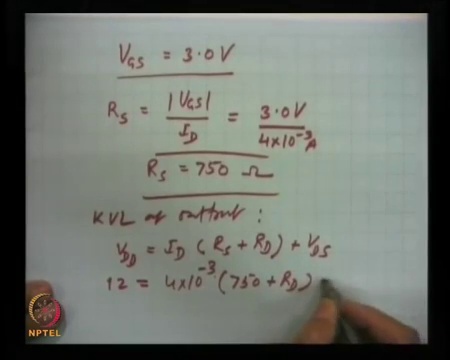 V_GS = 3.0 V
R_S = |V_GS| / I_D = 3.0 V / 4×10^-3 A
R_S = 750 Ω
KVL at output :
V_DD = I_D (R_S + R_D) + V_DS
12 = 4×10^-3 (750 + R_D)
NPTEL